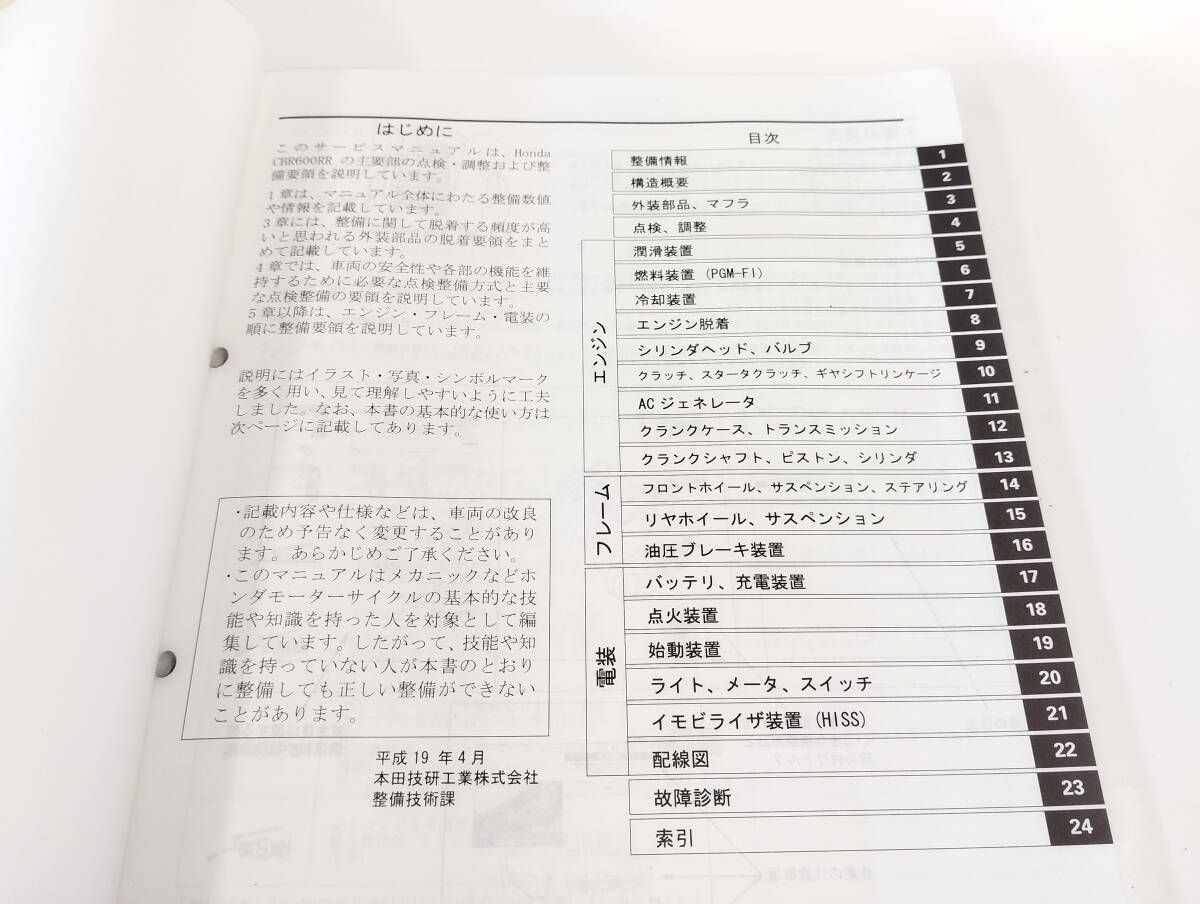 はじめに
このサービスマニュアルは、Honda
CBR600RR の主要部の点検・調整および整
備要領を説明しています。
1章は、マニュアル全体にわたる整備数値
や情報を記載しています。
3章には、整備に関して脱着する頻度が高
いと思われる外装部品の脱着要領をまと
めて記載しています。
4章では、車両の安全性や各部の機能を維
持するために必要な点検整備方式と主要
な点検整備の要領を説明しています。
5章以降は、エンジン・フレーム・電装の
順に整備要領を説明しています。
説明にはイラスト・写真・シンボルマーク
を多く用い、見て理解しやすいように工夫
しました。なお、本書の基本的な使い方は
次ページに記載してあります。
・記載内容や仕様などは、車両の改良
のため予告なく変更することがあり
ます。あらかじめご了承ください。
・このマニュアルはメカニックなどホ
ンダモーターサイクルの基本的な技
能や知識を持った人を対象として編
集しています。したがって、技能や知
識を持っていない人が本書のとおり
に整備しても正しい整備ができない
ことがあります。
平成19年4月
本田技研工業株式会社
整備技術課
目次
整備情報 1
構造概要 2
外装部品、マフラ 3
点検、調整 4
エンジン
潤滑装置 5
燃料装置 (PGM-FI) 6
冷却装置 7
エンジン脱着 8
シリンダヘッド、バルブ 9
クラッチ、スタータクラッチ、ギヤシフトリンケージ 10
ACジェネレータ 11
クランクケース、トランスミッション 12
クランクシャフト、ピストン、シリンダ 13
フレーム
フロントホイール、サスペンション、ステアリング 14
リヤホイール、サスペンション 15
油圧ブレーキ装置 16
電装
バッテリ、充電装置 17
点火装置 18
始動装置 19
ライト、メータ、スイッチ 20
イモビライザ装置 (HISS) 21
配線図 22
故障診断 23
索引 24